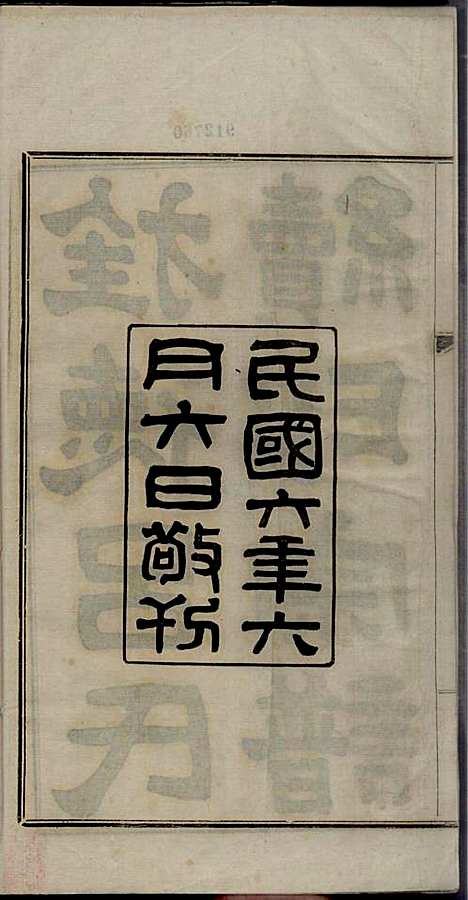 民國六年六
月六日敬刊